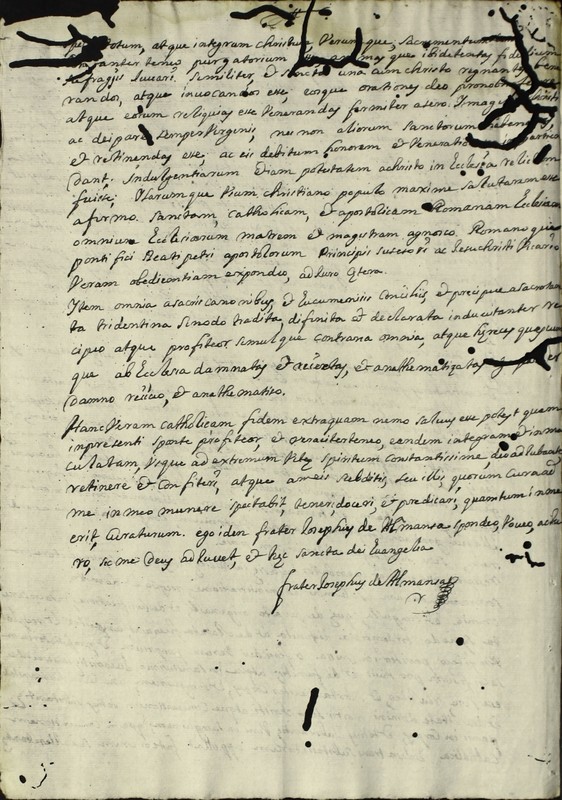 totum, atque integrum christum, Verumque, Sacramentum
constanter teneo purgatorium esse animasque ibi detentas fidelium
sufragijs iuuari. Similiter, et sanctos una cum christo regnantes vene
randos, atque inuocandos esse, eosque orationes deo pro nobis
atque eorum reliquias esse Venerandas firmiter asero. Imagines christi
ac deiparæ semper Virginis, nec non aliorum sanctorum
et retinendas esse, ac eis debitum honorem et Venerationem impartien
dam; Indulgentiarum etiam potestatem a christo in Ecclesia relictam
fuisse; illarumque Vsum christiano populo maxime salutarem esse
afirmo. Sanctam, catholicam, et apostolicam Romanam Ecclesiam
omnium Ecclesiarum matrem et magistram agnosco. Romano que
pontifici Beati petri apostolorum Principis sucesori ac Iesuchristi Vicario
Veram obedientiam espondeo, ad iuro
Item omnia a sacris canonibus, et Ecumenicis Concilijs et precipue a sacrosan
ta tridentina Sinodo tradita, difinita et declarata indubitanter re
cipio atque profiteor simulque contraria omnia, atque hæreses quascum
que ab Ecclesia damnatas et reiectas, et anathematizatas
damno reiicio, et anathematizo.
Hanc Veram catholicam fidem extra quam nemo saluus esse potest quam
inpresenti sponte profiteor, et veraciter teneo, eandem integram et inma
culatam, Vsque ad extremum Vitæ spiritum constantissime, deo adiubante
retinere et confiteri, atque a meis subditis, seu illis quorum cura ad
me in meo munere spectabit, teneri, doceri, et predicari, quantum in me
erit, Curaturum. ego iden frater Iosephus de Almansa spondeo, Voueo, ac iu
ro, sic me Deus adiuvet, et hæc sancta dei Euangelia
frater Iosephus de Almansa